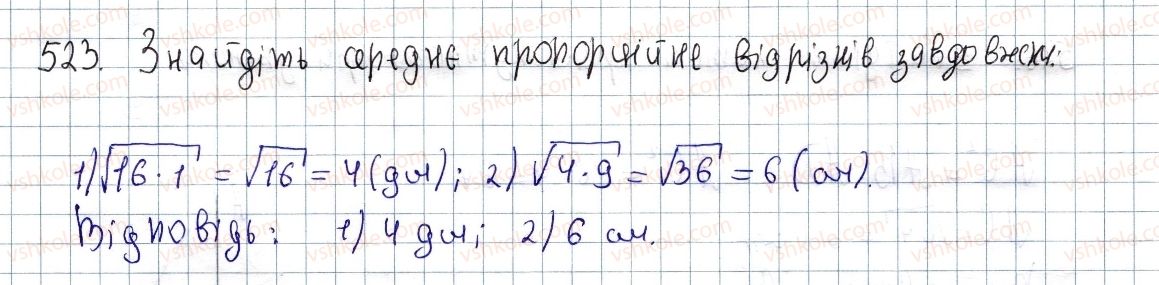 523. Знайдіть середнє пропорційне відрізків завдовжки:
1) √16·1 = √16 = 4 (дм); 2) √4·9 = √36 = 6 (см).
Відповідь: 1) 4 дм; 2) 6 см.